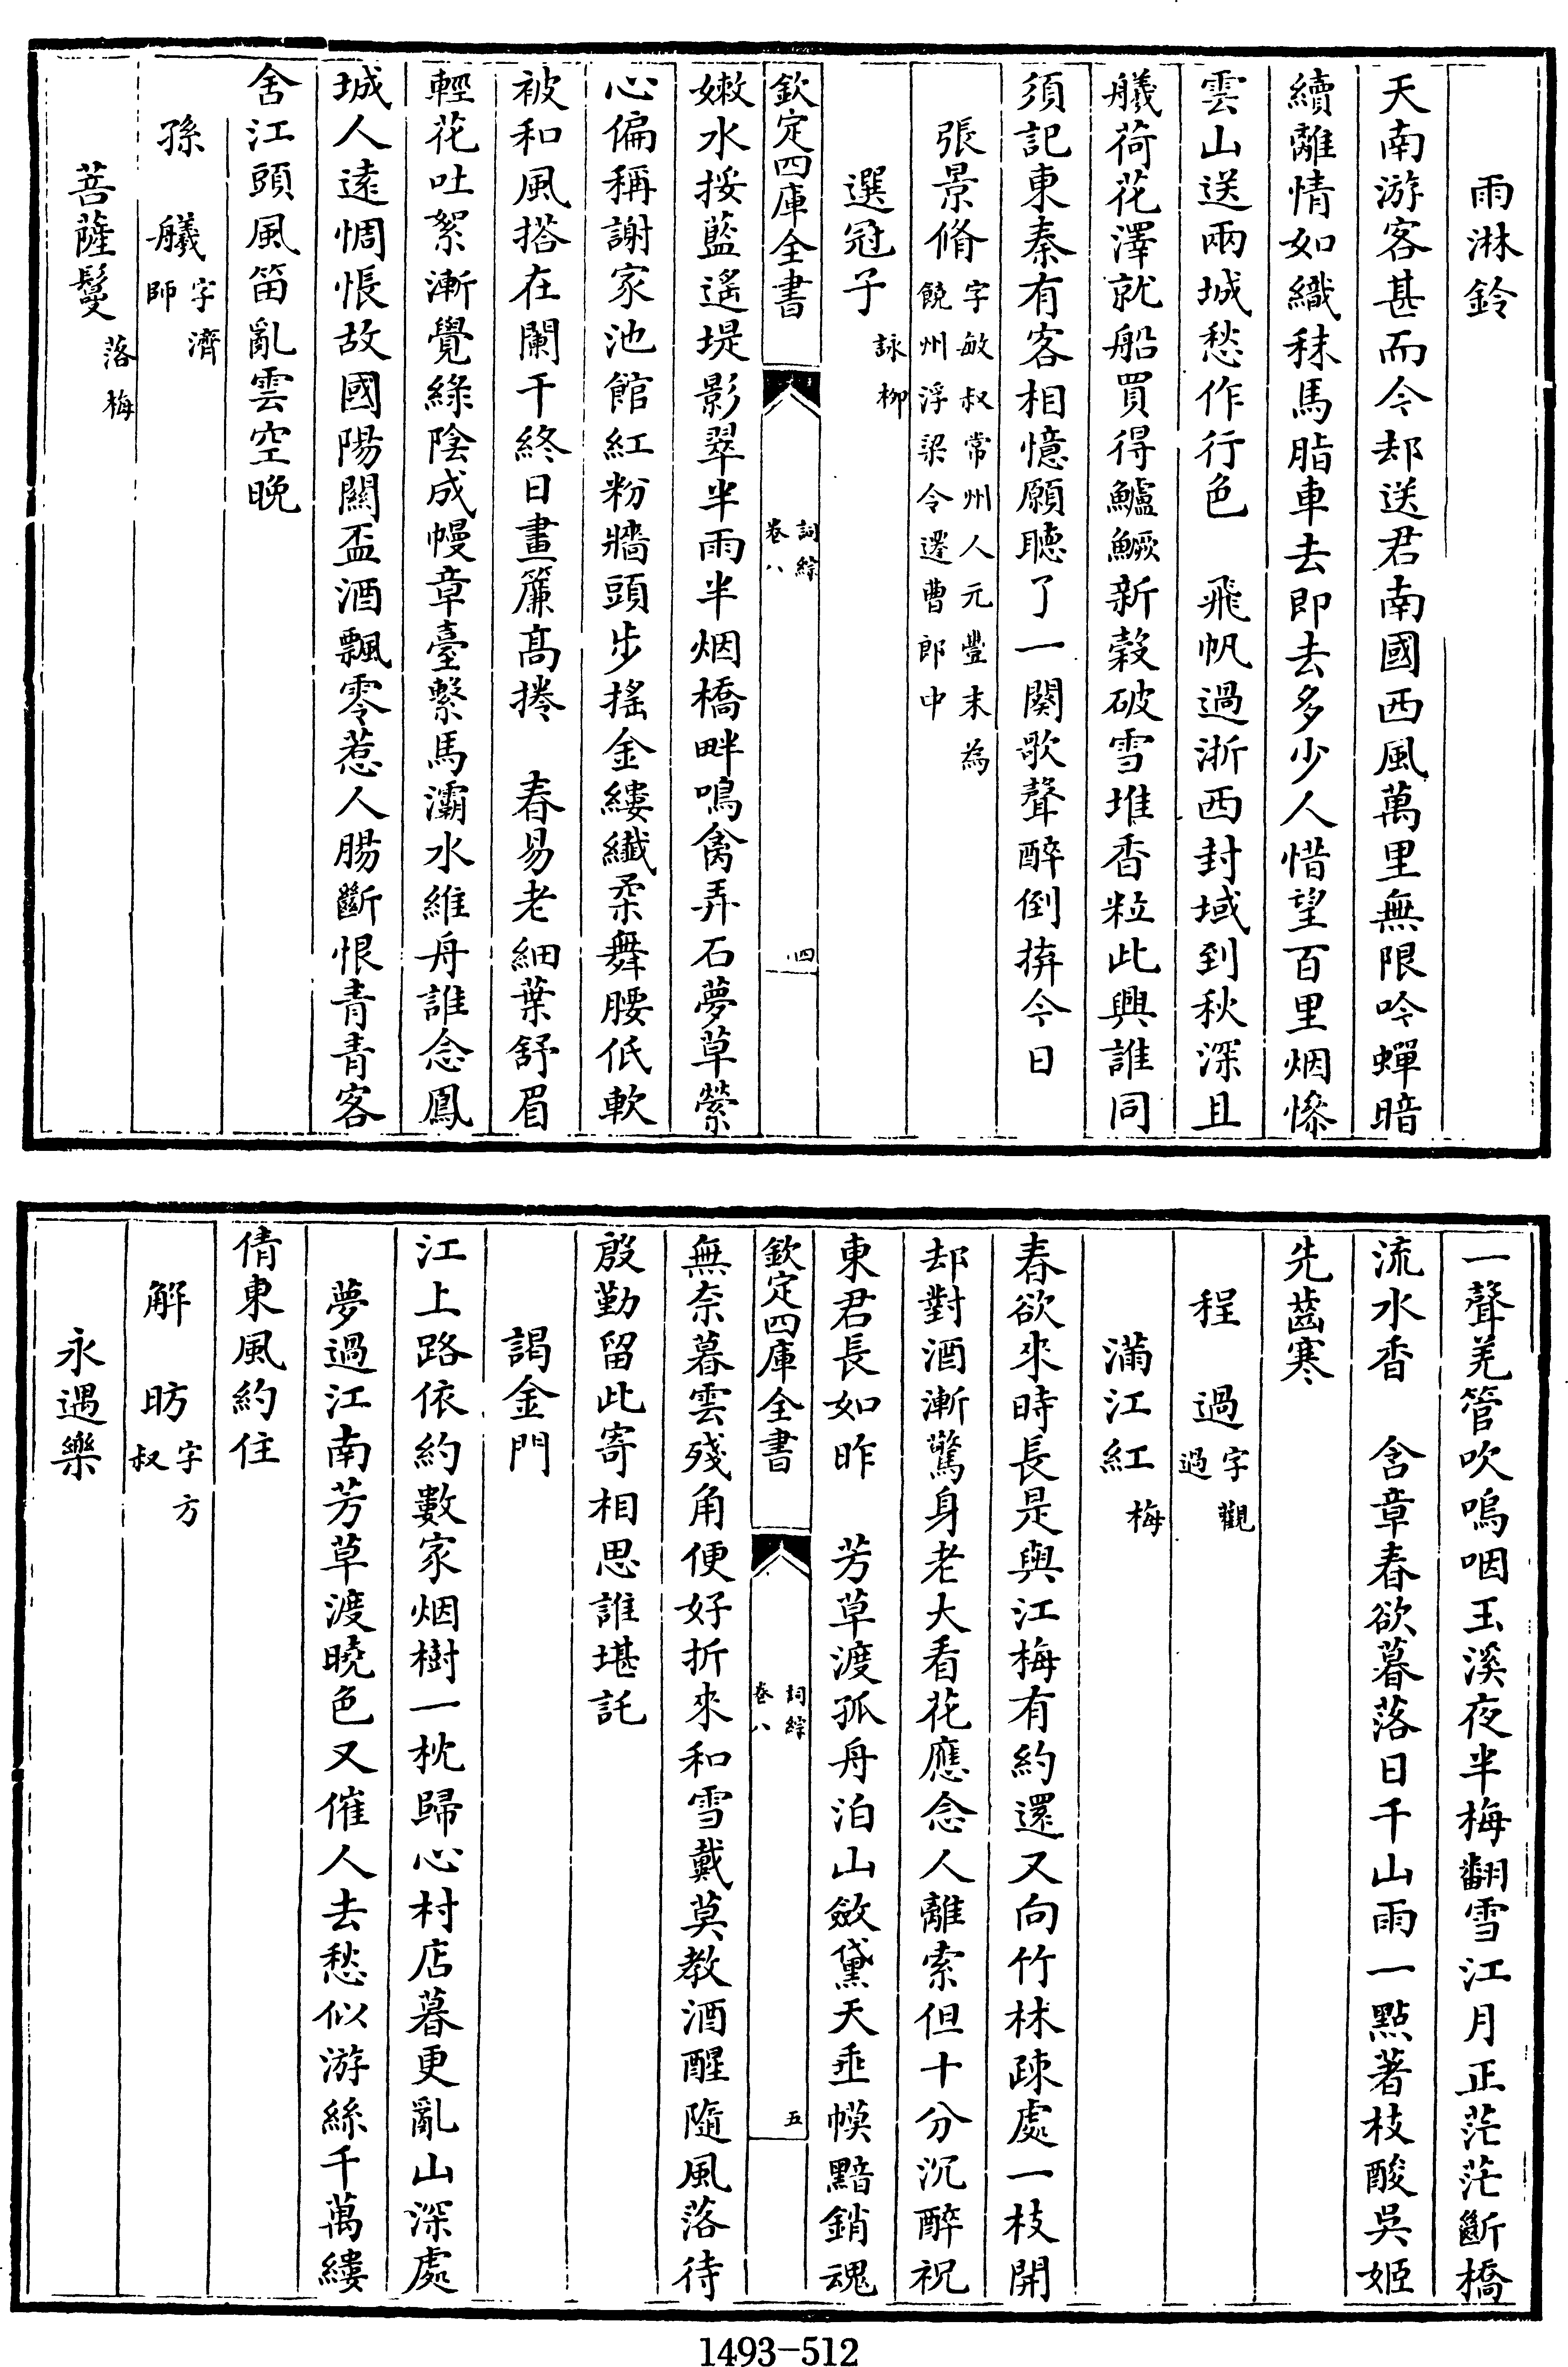 雨淋鈴
天南游客甚而今却送君南國西風萬里無限吟蟬暗
續離情如織秣馬脂車去即去多少人惜望百里烟慘
雲山送兩城愁作行色　飛帆過浙西封域到秋深且
艤荷花澤就船買得鱸鱖新穀破雪堆香粒此興誰同
須記東秦有客相憶願聽了一闋歌聲醉倒拚今日
張景脩字敏叔常州人元豐末為
饒州浮梁令遷曹郎中
選冠子詠柳
欽定四庫全書
詞綜
卷八
四
嫩水挼藍遙堤影翠半雨半烟橋畔鳴禽弄石夢草縈
心偏稱謝家池館紅粉牆頭步搖金縷纖柔舞腰低軟
被和風搭在闌干終日畫簾高捲　春易老細葉舒眉
輕花吐絮漸覺綠陰成幔章臺繫馬灞水維舟誰念鳳
城人遠惆悵故國陽關盃酒飄零惹人腸斷恨青青客
舍江頭風笛亂雲空晚
孫　艤字濟
師
菩薩鬘落梅
一聲羌管吹嗚咽玉溪夜半梅翻雪江月正茫茫斷橋
流水香　含章春欲暮落日千山雨一點著枝酸吳姬
先齒寒
程　過字觀
過
滿江紅梅
春欲來時長是與江梅有約還又向竹林疎處一枝開
却對酒漸驚身老大看花應念人離索但十分沉醉祝
東君長如昨　芳草渡孤舟泊山斂黛天垂幙黯銷魂
欽定四庫全書
詞綜
卷八
五
無奈暮雲殘角便好折來和雪戴莫教酒醒隨風落待
殷勤留此寄相思誰堪託
謁金門
江上路依約數家烟樹一枕歸心村店暮更亂山深處
夢過江南芳草渡曉色又催人去愁似游絲千萬縷
倩東風約住
解　昉字方
叔
永遇樂
1493-512